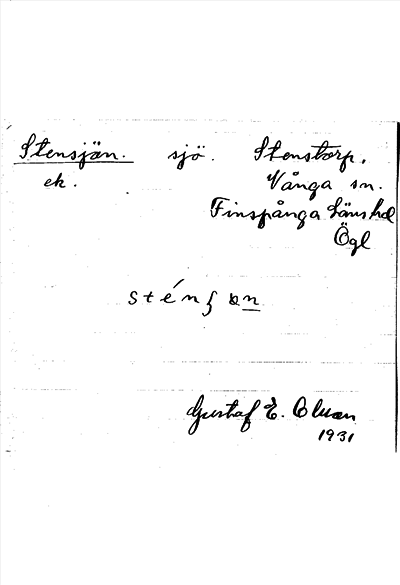 Stensjön. sjö. Stenstorp,
ek. Vånga sn.
Finspånga läns hd
Ögl
sténʃ ɒn
Gustaf E.
1931